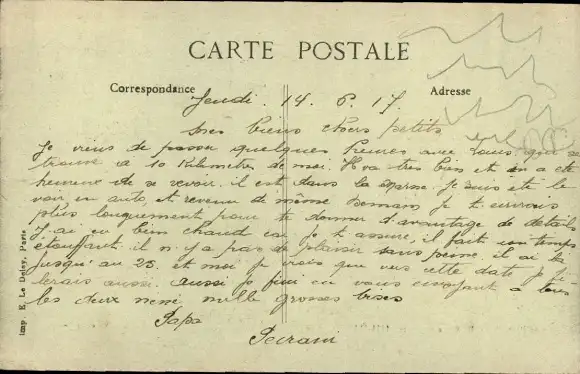 CARTE POSTALE
Correspondance
Adresse
Jeudi. 14. 6. 17.
Mes biens chers petits
Je viens de passer quelques heures avec Louis, qui se
trouve a 10 Kilometres de moi. Il va tres bien et on a ete
heureux de se revoir. il est dans la Je suis ete le
voir en auto, et revenu de même Demain, je t. ecrirais
plus longuement pour te donner d'avantage de details
J'ai eu bien chaud car je t. assure, il fait un temps
etouffant. il n. y a pas de plaisir sans peine. il ai la
Jusqu'au 25. et moi je crois que vers cette date je
lerais aussi. aussi je fini en vous envoyant a tous
les deux mille grosses bises
Papa
Imp. E. Le Deley, Paris